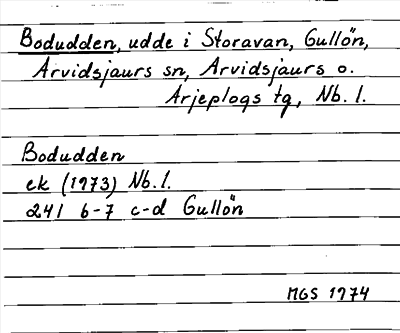 Bodudden, udde i Storavan, Gullön,
Arvidsjaurs sn, Arvidsjaurs o.
Arjeplogs tg, Nb. l.
Bodudden
ek (1973) Nb. l.
241 6-7 c-d Gullön
MGS 1974